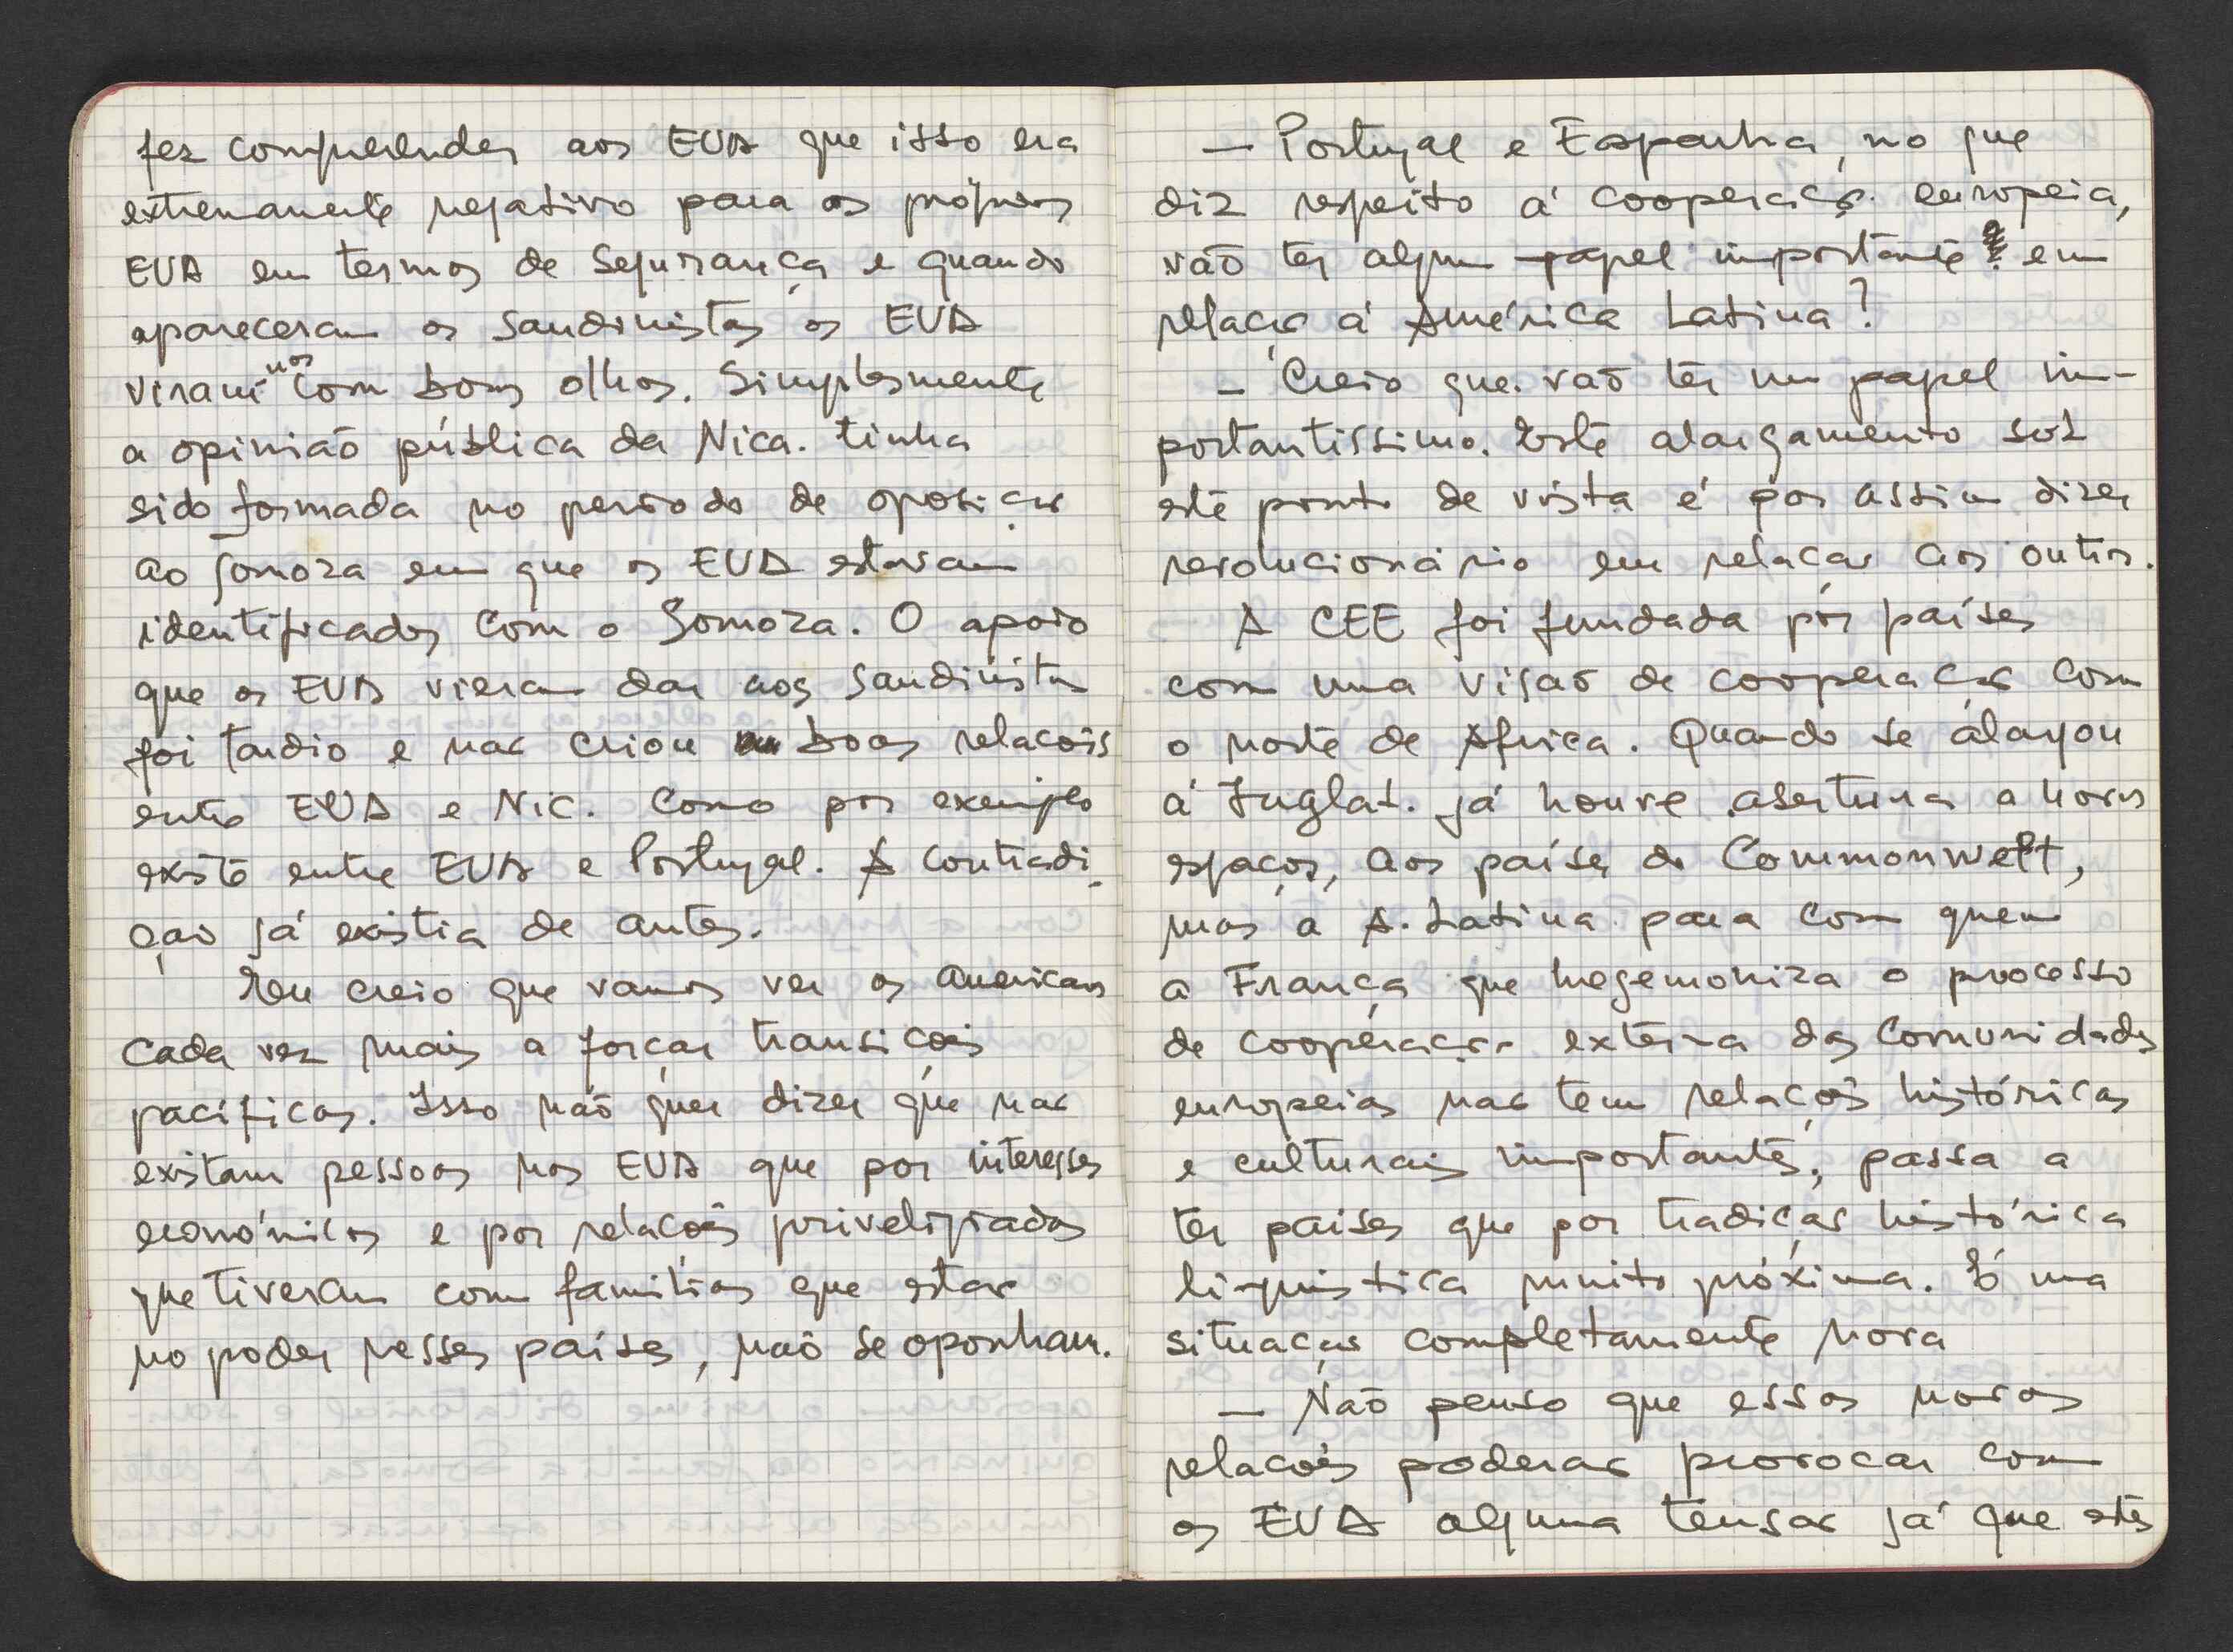 fez compreender aos EUA que isso era
extremamente negativo para os próprios
EUA em termos de segurança e quando
apareceram os sandinistas os EUA
viram-nos com bons olhos. Simplesmente
a opinião pública da Nica. tinha
sido formada no período de oposição
ao Somoza em que os EUA estavam
identificados com o Somoza. O apoio
que os EUA vieram dar aos sandinistas
foi tardio e não criou boas relações
entre EUA e Nic. Como por exemplo
existe entre EUA e Portugal. A contradi-
ção já existia de antes.
Eu creio que vamos ver os americanos
cada vez mais a forçar transições
pacíficas. Isso não quer dizer que não
existam pessoas nos EUA que por interesses
económicos e por relações priveligiadas
que tiveram com famílias que estão
no poder nesses países, não se oponham.
— Portugal e Espanha, no que
diz respeito á cooperação europeia,
vão ter algum papel importante em
relação á América Latina?
— Creio que vão ter um papel im-
portantissimo. Este alargamento sob
este ponto de vista é por assim dizer
revolucionário em relação aos outros.
A CEE foi fundada por países
com uma visão de cooperação com
o norte de Africa. Quando se alargou
á Inglat. já houve abertura a novos
espaços, aos países do Commonwelt,
mas a A. Latina para com quem
a França que hegemoniza o processo
de cooperação externa das Comunidades
europeias não tem relações históricas
e culturais importantes, passa a
ter países que por tradição histórica
linguistica muito próxima. É uma
situação completamente nova
— Não penso que essas novas
relações poderão provocar com
os EUA alguma tensão já que estes